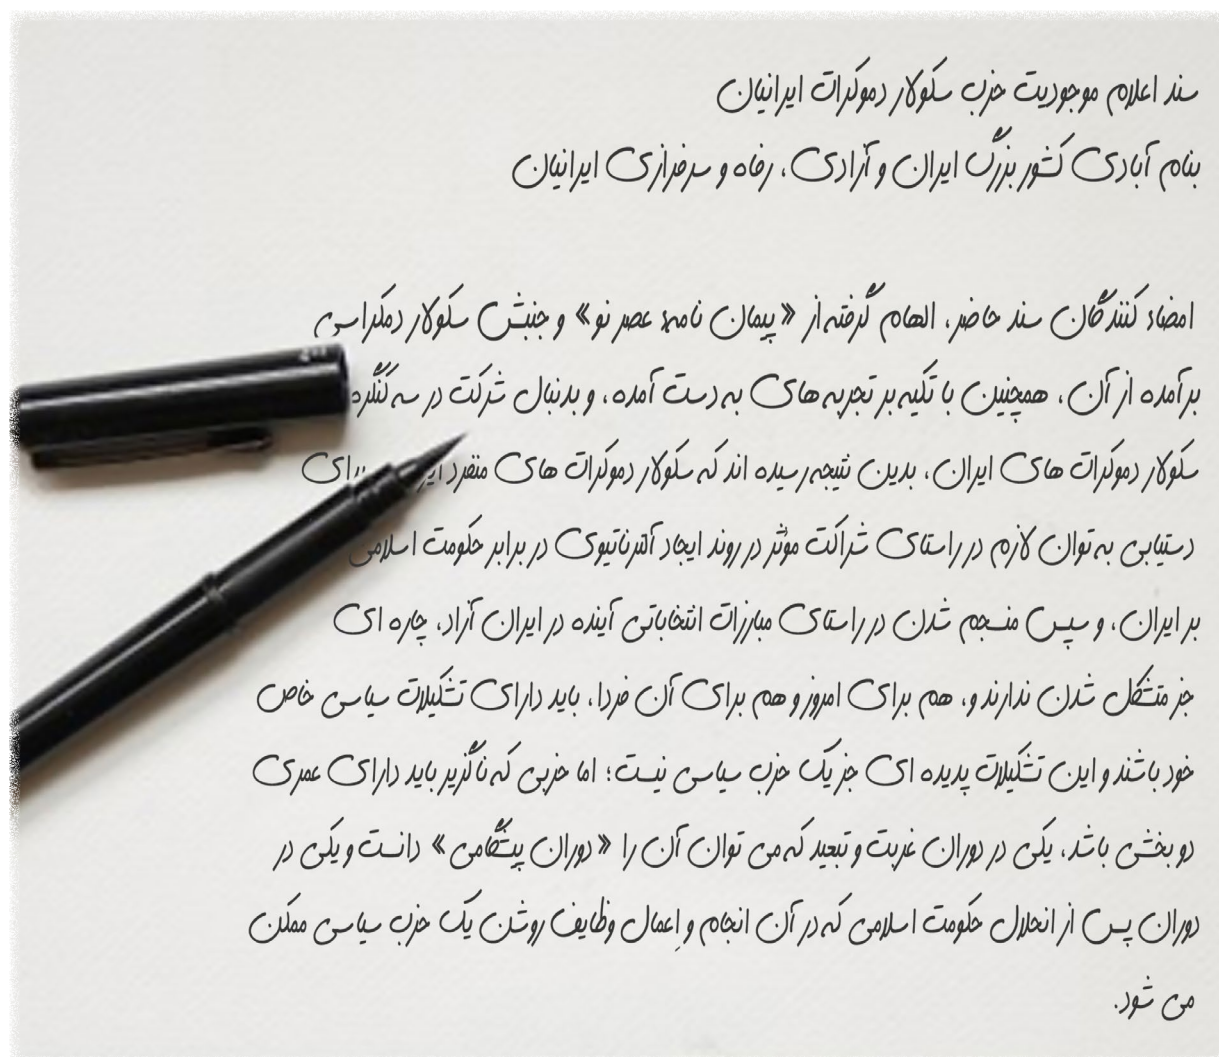 سند اعلام موجودیت حزب سکولار دموکرات ایرانیان
بنام آبادی کشور بزرگ ایران و آزادی، رفاه و سرفرازی ایرانیان
امضاء کنندگان سند حاضر، الهام گرفته از «پیمان نامهء عصر نو» و جنبش سکولار دمکراسی
برآمده از آن، همچنین با تکیه بر تجربه های به دست آمده، و بدنبال شرکت در سه کنگره
سکولار دموکرات های ایران، بدین نتیجه رسیده اند که سکولار دموکرات های منفرد
دستیابی به توان لازم در راستای شراکت مؤثر در روند ایجاد آلترناتیوی در برابر حکومت اسلامی
بر ایران، و سپس منسجم شدن در راستای مبارزات انتخاباتی آینده در ایران آزاد، چاره ای
جز متشکل شدن ندارند و، هم برای امروز و هم برای آن فردا، باید دارای تشکیلات سیاسی خاص
خود باشند و این تشکیلات پدیده ای جز یک حزب سیاسی نیست؛ اما حزبی که ناگزیر باید دارای عمری
دو بخشی باشد، یکی در دوران غربت و تبعید که می توان آن را «دوران پیشگامی» دانست و یکی در
دوران پس از انحلال حکومت اسلامی که در آن انجام و اِعمال وظایف روشن یک حزب سیاسی ممکن
می شود.